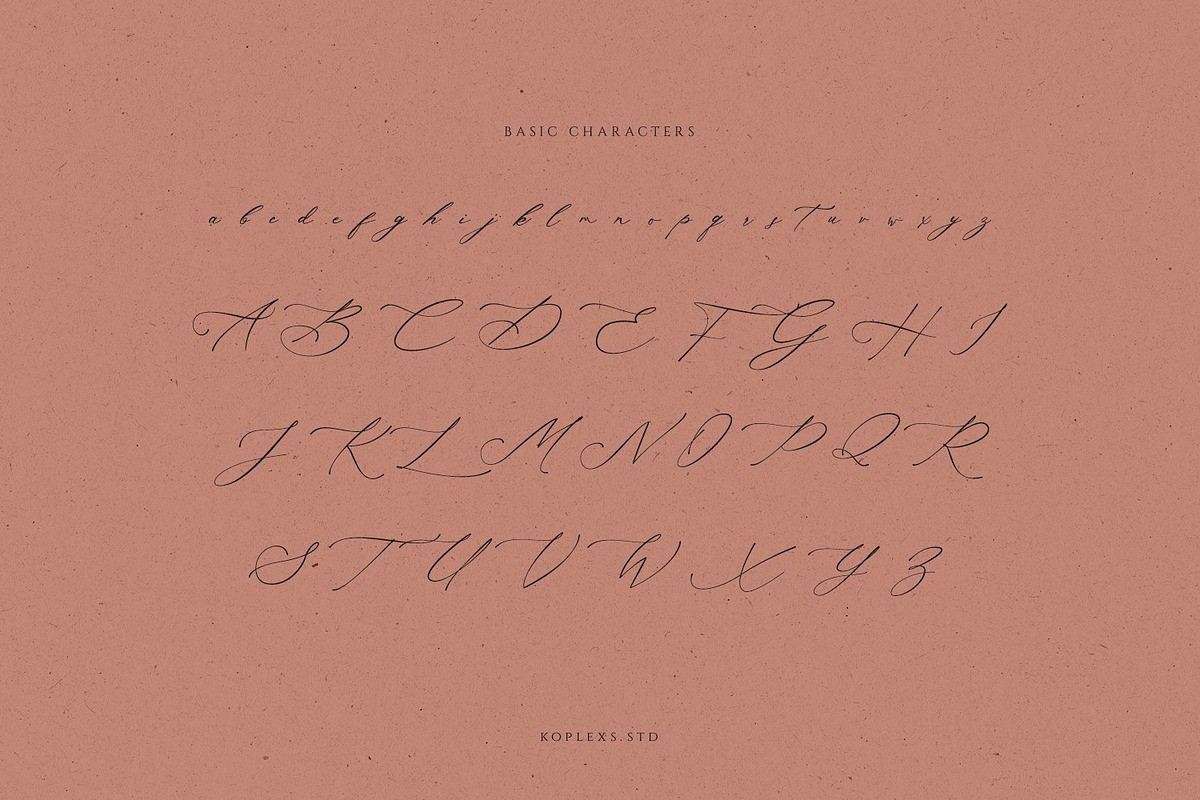 BASIC CHARACTERS
a b c d e f g h i j k l m n o p q r s t u v w x y z
A B C D E F G H I
J K L M N O P Q R
S T U V W X Y Z
KOPLEXS.STD